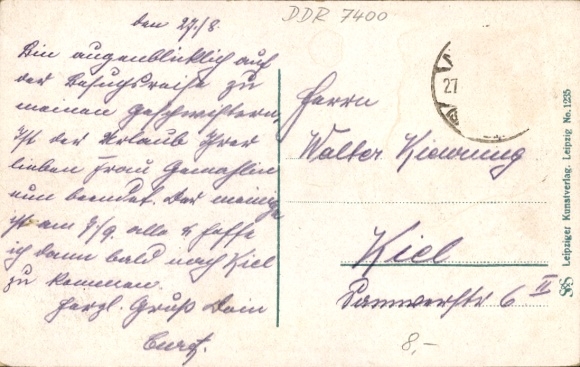 DDR 7400
den 27./8.
Bin augenblicklich auf
der Besuchsreise zu
meinen Geschwistern,
ist der Urlaub Ihrer
lieben Frau Gemahlin
nun beendet. Der meinige
ist am 7/9. alle u. hoffe
ich dann bald nach Kiel
zu kommen.
Herzl. Gruß Dein
Herrn
Walter
Kiel
6 II
27
8,-
Leipziger Kunstverlag. Leipzig No. 1235